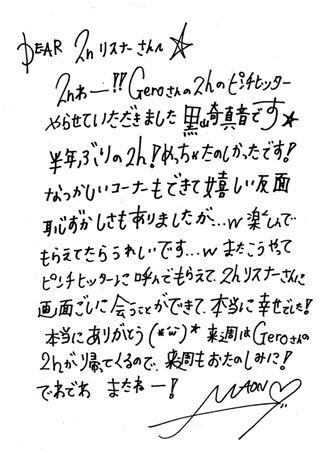 DEAR 2n リスナーさんへ☆
2nわー!! Geroさんの2hのピンチヒッター
やらせていただきました 黒崎真音です★
半年ぶりの2h!めっちゃたのしかったです!
なつかしいコーナーもできて嬉しい反面
恥ずかしさもありましたが...w 楽しんで
もらえてたらうれしいです...w またこうやって
ピンチヒッターに呼んでもらえて、2hリスナーさんに
画面ごしに会うことができて、本当に幸せでした!
本当にありがとう(*´ω`)* 来週はGeroさんの
2hが帰ってくるので、来週もおたのしみに!
でわでわ またねー!
MAON♡